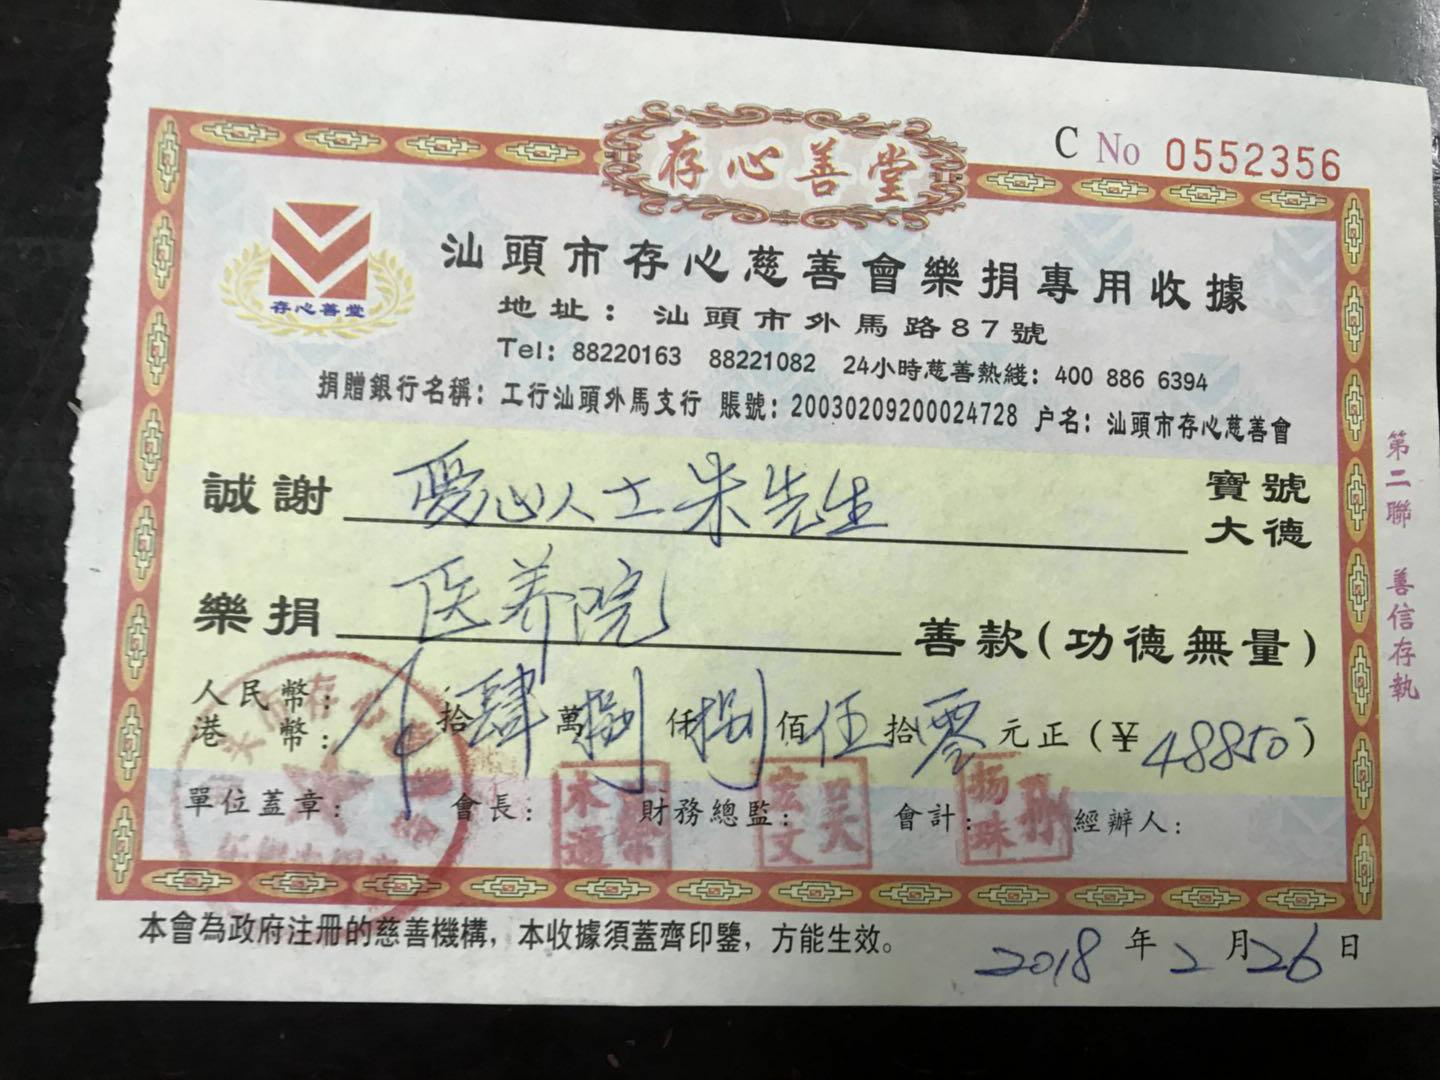 存心善堂
C No 0552356
存心善堂
汕頭市存心慈善會樂捐專用收據
地址：汕頭市外馬路87號
Tel: 88220163 88221082 24小時慈善熱綫: 400 886 6394
捐贈銀行名稱：工行汕頭外馬支行 賬號：20030209200024728 户名：汕頭市存心慈善會
誠謝 爱心人士朱先生 寶號
大德
樂捐 医养院 善款(功德無量)
人民幣：
港幣： 拾肆萬捌仟捌佰伍拾零元正(¥48850)
單位蓋章： 會長： 財務總監： 會計： 經辦人：
宏文 吴
杨珠 孙
本會為政府注冊的慈善機構，本收據須蓋齊印鑒，方能生效。
2018年2月26日
第二聯 善信存執